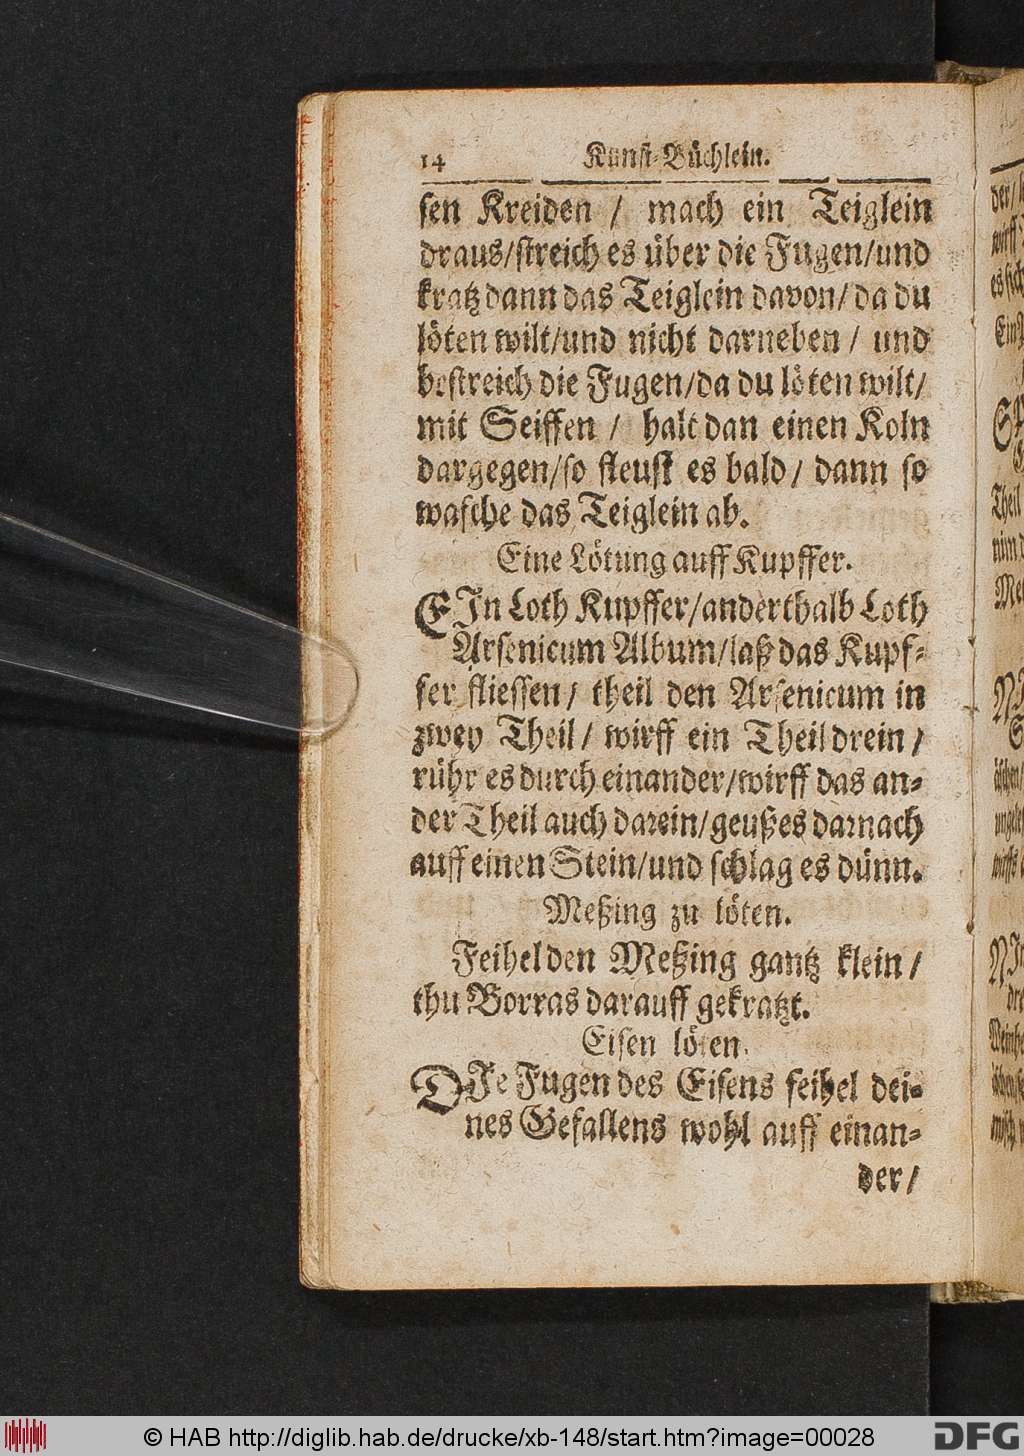 14 Kunst-Büchlein.
sen Kreiden / mach ein Teiglein
draus/streich es über die Fugen/und
kratz dann das Teiglein davon/ da du
löten wilt/und nicht darneben / und
bestreich die Fugen/da du löten wilt/
mit Seiffen / halt dan einen Koln
dargegen/so fleust es bald / dann so
wasche das Teiglein ab.
Eine Lötung auff Kupffer.
EIn Loth Kupffer/anderthalb Loth
Arsenicum Album/laß das Kupf-
fer fliessen / theil den Arsenicum in
zwey Theil / wirff ein Theil drein /
rühr es durch einander/wirff das an-
der Theil auch darein/geuß es darnach
auff einen Stein/und schlag es dünn.
Meßing zu löten.
Feihel den Meßing gantz klein /
thu Borras darauff gekratzt.
Eisen löten.
DIe Fugen des Eisens feihel dei-
nes Gefallens wohl auff einan-
der /
© HAB http://diglib.hab.de/drucke/xb-148/start.htm?image=00028
DFG